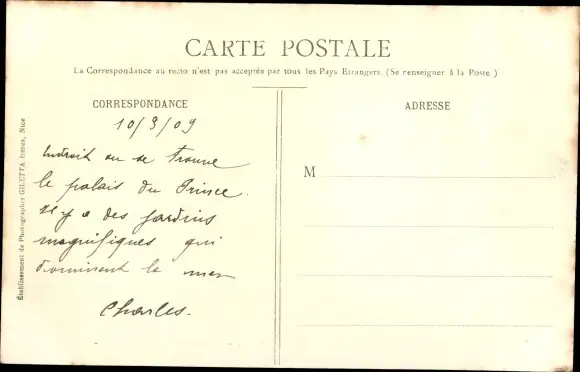 CARTE POSTALE
La Correspondance au recto n'est pas acceptée par tous les Pays Etrangers. (Se renseigner à la Poste )
CORRESPONDANCE
10/3/09
endroit ou se trouve
le palais du Prince.
il y a des jardins
magnifiques qui
dominent la mer
Charles.
ADRESSE
M
Etablissement de Photographie GILETTA frères, Nice